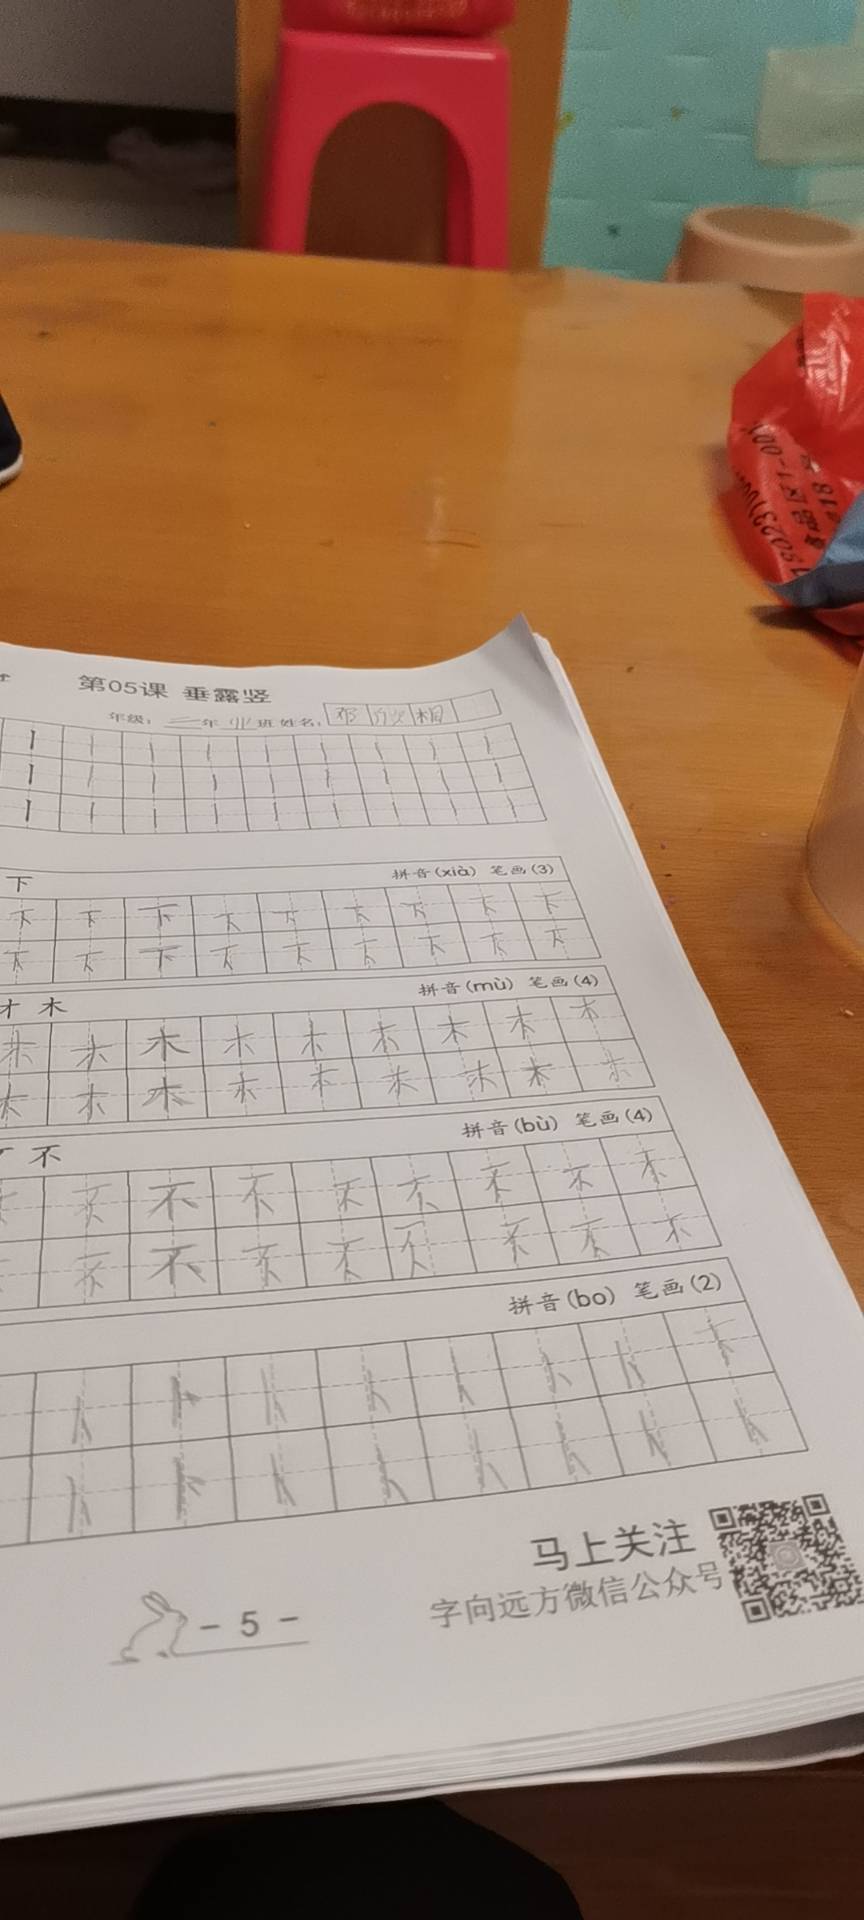 第05课 垂露竖
年级: 二年 班 姓名:
下 拼音(xià) 笔画(3)
下 下 下 下 下 下 下 下 下
下 下 下 下 下 下 下 下 下
才 木 拼音(mù) 笔画(4)
木 木 木 木 木 木 木 木 木
木 木 木 木 木 木 木 木 木
不 拼音(bù) 笔画(4)
不 不 不 不 不 不 不 不
不 不 不 不 不 不 不 不
拼音(bo) 笔画(2)
卜 卜 卜 卜 卜 卜 卜 卜
卜 卜 卜 卜 卜 卜 卜 卜
马上关注
字向远方微信公众号
- 5 -